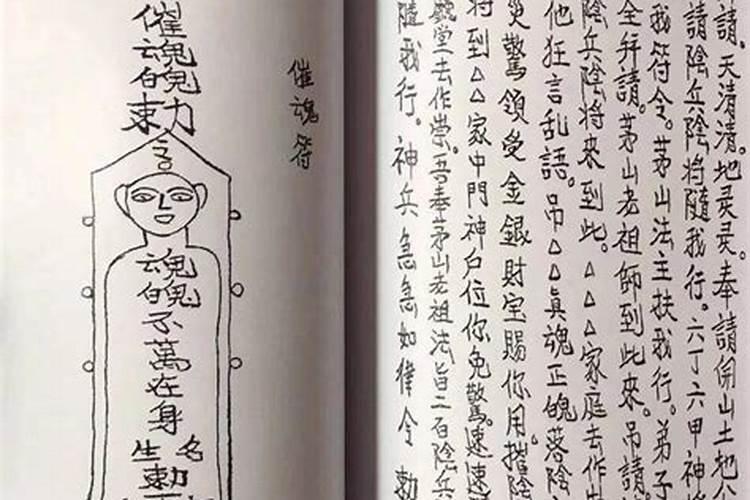 請。天清清。地灵灵。奉請開山土地公
請陰兵陰將隨我行。六丁六甲神將
我符令。茅山法主扶我行。弟子
全拜請。茅山老祖師到此來。吊請
陰兵陰將來到此。△△△家庭去作
他狂言乱語。吊△△真魂正魄落陰
災驚領受金銀財宝賜你用。摧陰
將到△△家中門神户位你免驚。速速
堂去作祟。吾奉茅山老祖法旨二百陰兵
隨我行。神兵急急如律令 勅
催魂符
催魂魄勅
魂魄不萬在身
生勅名